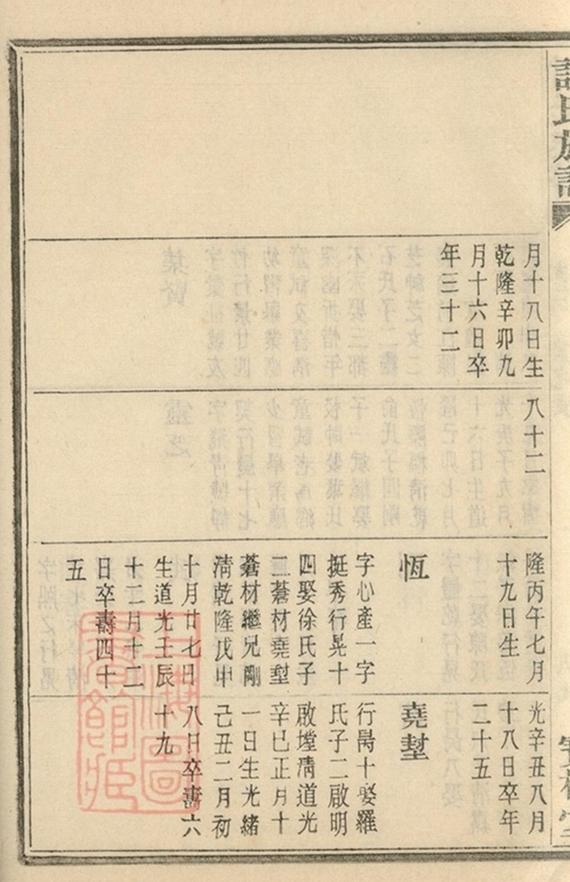 氏族譜
月十八日生
乾隆辛卯九
月十六日卒
年三十二
八十二
隆丙午七月
十九日生
恆
字心產一字
挺秀行晃十
四娶徐氏子
二蒼材堯堼
蒼材繼兄剛
清乾隆戊申
十月廿七日
生道光壬辰
十二月十二
日卒壽四十
五
光辛丑八月
十八日卒年
二十五
堯堼
行暠十娶羅
氏子二啟明
啟瑩清道光
辛巳正月十
一日生光緒
己丑二月初
八日卒壽六
十九
上海圖
書館藏